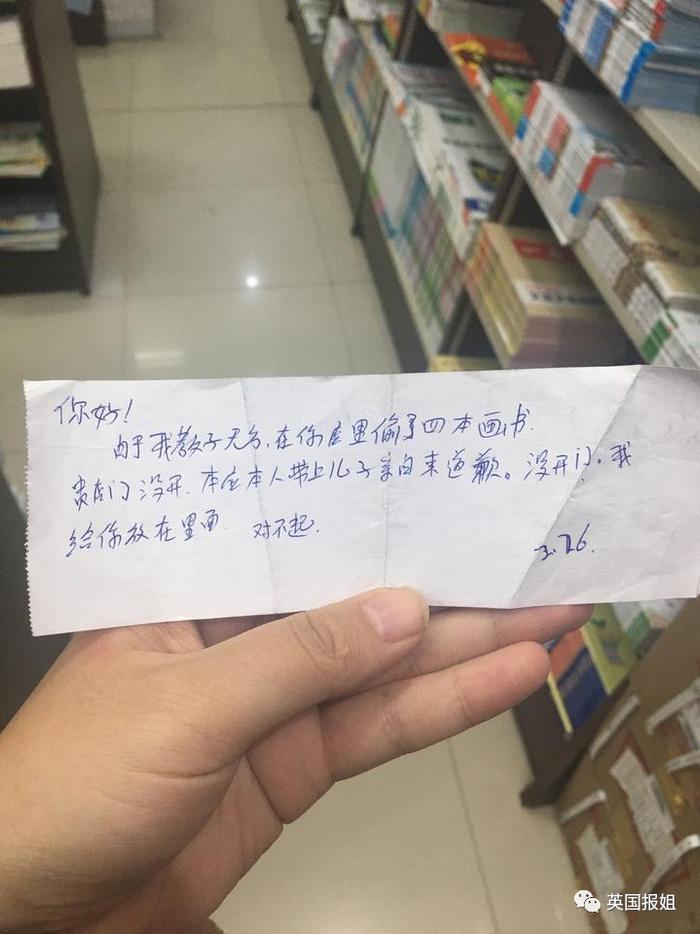 你好!
由于我教子无方,在你店里偷了四本画书.
贵店门没开.本应本人带上儿子亲自来道歉。没开门.我
给你放在里面. 对不起.
3.26.
英国报姐